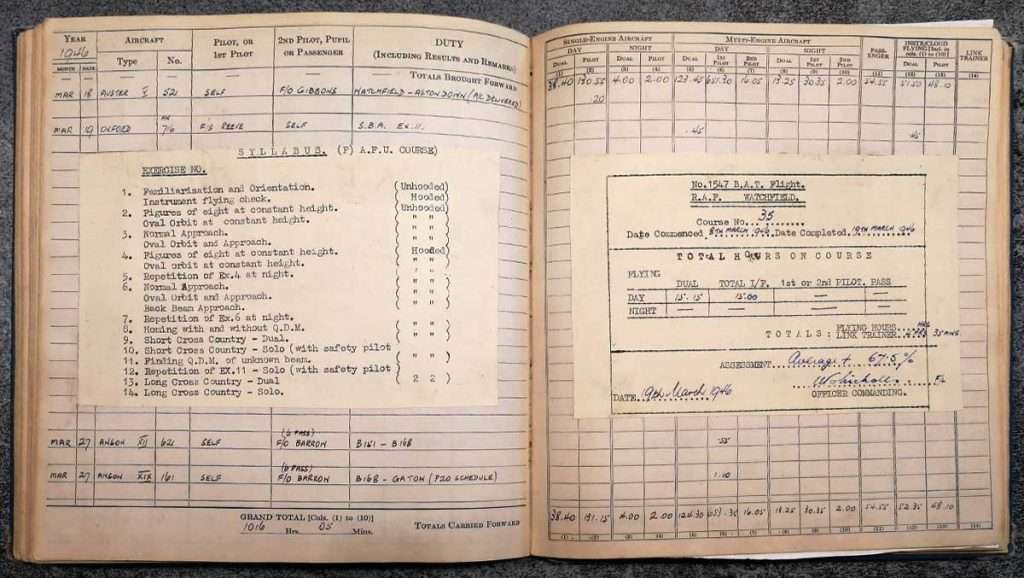 YEAR 1946 AIRCRAFT PILOT, OR 1ST PILOT 2ND PILOT, PUPIL OR PASSENGER DUTY (INCLUDING RESULTS AND REMARKS)
MONTH DATE Type No.
— — — — TOTALS BROUGHT FORWARD
MAR 18 AUSTER V 521 SELF F/O GIBBONS WATCHFIELD - ASTON DOWN (A/C DELIVERED)
MAR 19 OXFORD 716 SELF S.B.A. EX. 11.
SYLLABUS. (P) A.F.U. COURSE)
EXERCISE NO.
1. Familiarisation and Orientation. (Unhooded)
Instrument flying check. ( Hooded )
2. Figures of eight at constant height. (Unhooded)
Oval Orbit at constant height. ( " " )
3. Normal Approach. ( " " )
Oval Orbit and Approach. ( " " )
4. Figures of eight at constant height. ( Hooded )
Oval orbit at constant height. ( " " )
5. Repetition of Ex.4 at night. ( " " )
6. Normal Approach. ( " " )
Oval Orbit and Approach. ( " " )
Back Beam Approach. ( " " )
7. Repetition of Ex.6 at night. ( " " )
8. Homing with and without Q.D.M. ( " " )
9. Short Cross Country - Dual. ( " " )
10. Short Cross Country - Solo (with safety pilot )
11. Finding Q.D.M. of unknown beam. ( " " )
12. Repetition of EX.11 - Solo (with safety pilot )
13. Long Cross Country - Dual ( 2 2 )
14. Long Cross Country - Solo.
MAR 27 ANSON XII 621 SELF F/O BARRON B151 - B168
MAR 27 ANSON XIX 161 SELF F/O BARRON B168 - GATOW (P20 SCHEDULE)
GRAND TOTAL [Cols. (1) to (10)]
1016 Hrs. 05 Mins.
TOTALS CARRIED FORWARD
SINGLE-ENGINE AIRCRAFT MULTI-ENGINE AIRCRAFT PASSENGER INSTR/CLOUD FLYING [Incl. in cols. (1) to (10)] LINK TRAINER
DAY NIGHT DAY NIGHT
DUAL PILOT DUAL PILOT DUAL 1ST PILOT 2ND PILOT DUAL 1ST PILOT 2ND PILOT DUAL PILOT
(1) (2) (3) (4) (5) (6) (7) (8) (9) (10) (11) (12) (13) (14)
38.40 130.55 4.00 2.00 123.45 651.30 16.05 18.25 30.35 2.00 54.55 51.50 48.10
.20
.45 .45
No.1547 B.A.T. Flight.
R.A.F. WATCHFIELD.
Course No. 35
Date Commenced 8TH MARCH 1946 Date Completed 19TH MARCH 1946
TOTAL HOURS ON COURSE
FLYING
DUAL TOTAL I/F. 1st or 2nd PILOT. PASS
DAY 15.15 15.00 — —
NIGHT — — — —
TOTALS: FLYING HOURS
LINK TRAINER 35 MINS
ASSESSMENT Average + 67.5%
DATE 19th March 1946 OFFICER COMMANDING.
.55
1.10
38.40 131.15 4.00 2.00 124.30 653.35 16.05 18.25 30.35 2.00 54.55 52.35 48.10
(1) (2) (3) (4) (5) (6) (7) (8) (9) (10) (11) (12) (13) (14)